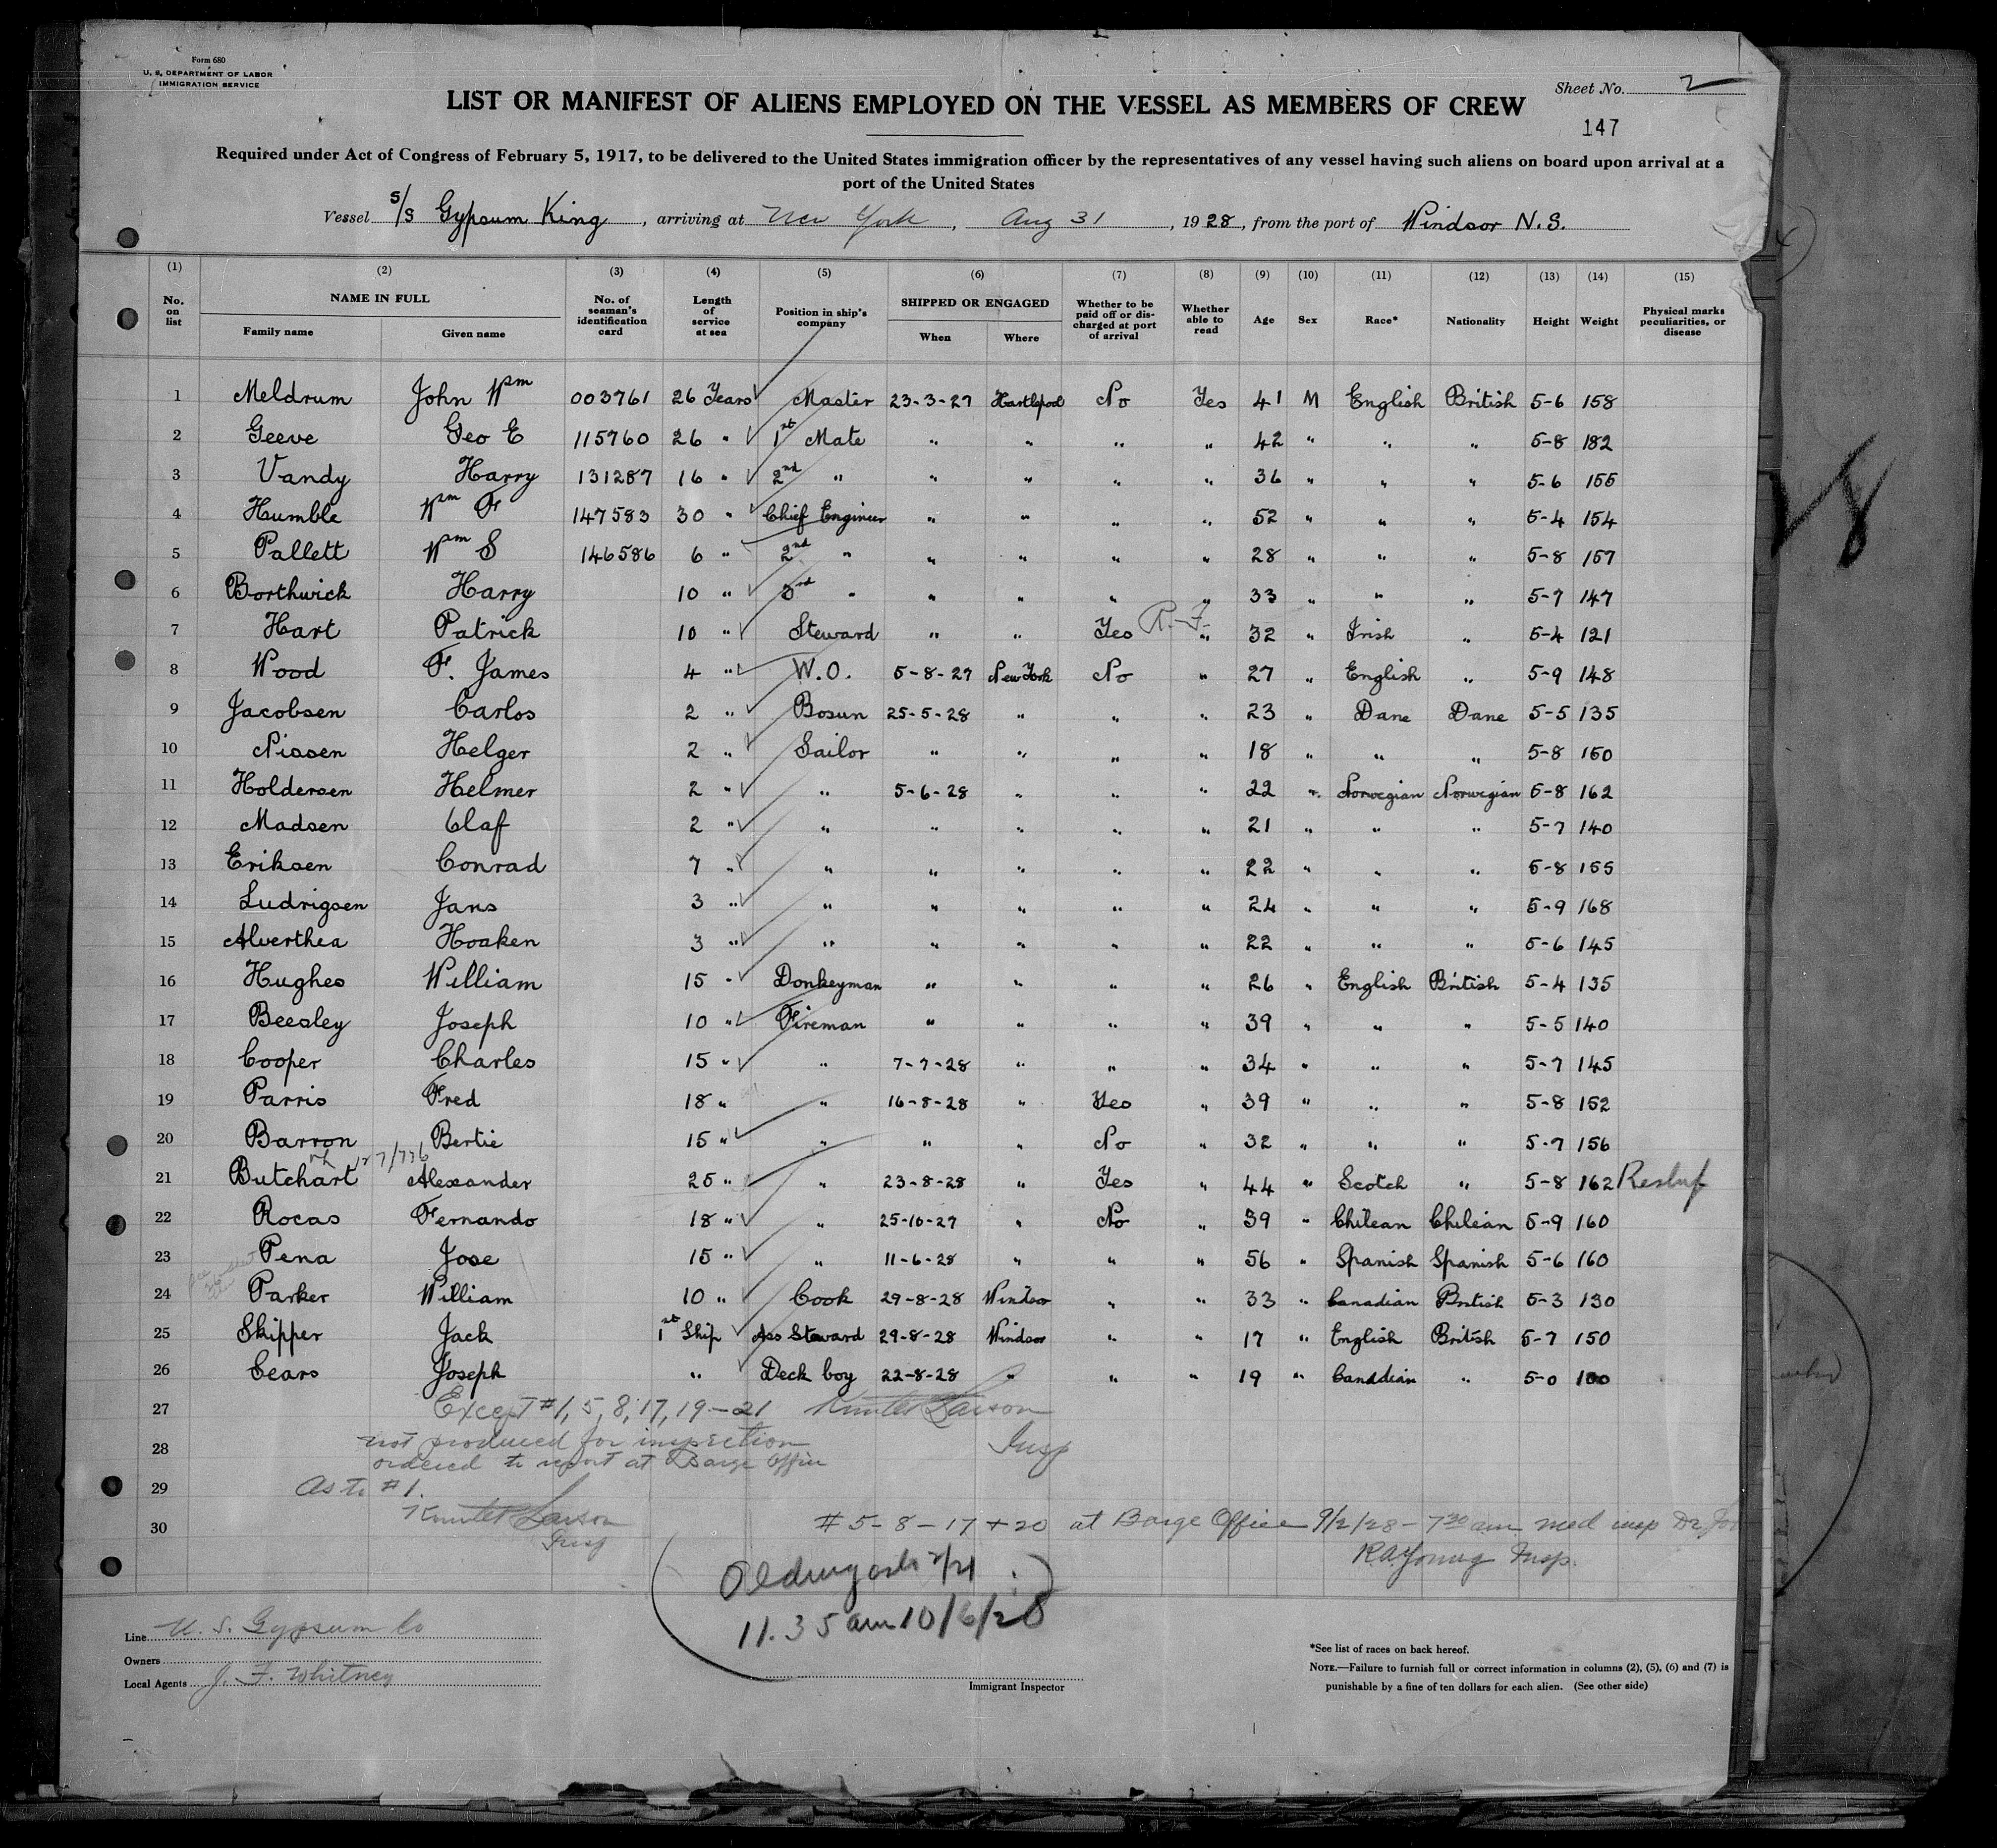 Form 680
U. S. DEPARTMENT OF LABOR
IMMIGRATION SERVICE
Sheet No. 2
LIST OR MANIFEST OF ALIENS EMPLOYED ON THE VESSEL AS MEMBERS OF CREW
147
Required under Act of Congress of February 5, 1917, to be delivered to the United States immigration officer by the representatives of any vessel having such aliens on board upon arrival at a
port of the United States
Vessel S/S Gypsum King, arriving at New York, Aug 31, 1928, from the port of Windsor N.S.
(1) (2) (3) (4) (5) (6) (7) (8) (9) (10) (11) (12) (13) (14) (15)
No. on list NAME IN FULL Family name Given name No. of seaman's identification card Length of service at sea Position in ship's company SHIPPED OR ENGAGED When Where Whether to be paid off or discharged at port of arrival Whether able to read Age Sex Race* Nationality Height Weight Physical marks peculiarities, or disease
1 Meldrum John Wm 003761 26 Years Master 23-3-27 Hartlepool No Yes 41 M English British 5-6 158
2 Geeve Geo E 115760 26 " 1st Mate " " " " 42 " " " 5-8 182
3 Vandy Harry 131287 16 " 2nd " " " " " 36 " " " 5-6 155
4 Humble Wm F 147583 30 " Chief Engineer " " " " 52 " " " 5-4 154
5 Pallett Wm S 146586 6 " 2nd " " " " " 28 " " " 5-8 157
6 Borthwick Harry 10 " 3rd " " " " " 33 " " " 5-7 147
7 Hart Patrick 10 " Steward " " Yes R.F. " 32 " Irish " 5-4 121
8 Wood F. James 4 " W.O. 5-8-27 New York No " 27 " English " 5-9 148
9 Jacobsen Carlos 2 " Bosun 25-5-28 " " " 23 " Dane Dane 5-5 135
10 Nissen Helger 2 " Sailor " " " " 18 " " " 5-8 150
11 Holdersen Helmer 2 " " 5-6-28 " " " 22 " Norwegian Norwegian 5-8 162
12 Madsen Olaf 2 " " " " " " 21 " " " 5-7 140
13 Eriksen Conrad 7 " " " " " " 22 " " " 5-8 155
14 Ludrigsen Jans 3 " " " " " " 24 " " " 5-9 168
15 Alverthea Hoaken 3 " " " " " " 22 " " " 5-6 145
16 Hughes William 15 " Donkeyman " " " " 26 " English British 5-4 135
17 Beesley Joseph 10 " Fireman " " " " 39 " " " 5-5 140
18 Cooper Charles 15 " " 7-7-28 " " " 34 " " " 5-7 145
19 Parris Fred 18 " " 16-8-28 " Yes " 39 " " " 5-8 152
20 Barron Bertie 15 " " " " No " 32 " " " 5-7 156
21 Butchart Alexander 25 " " 23-8-28 " Yes " 44 " Scotch " 5-8 162
22 Rocas Fernando 18 " " 25-10-27 " No " 39 " Chilean Chilean 5-9 160
23 Pena Jose 15 " " 11-6-28 " " " 56 " Spanish Spanish 5-6 160
24 Parker William 10 " Cook 29-8-28 Windsor " " 33 " Canadian British 5-3 130
25 Skipper Jack 1st Ship Ass Steward 29-8-28 Windsor " " 17 " English British 5-7 150
26 Sears Joseph " Deck boy 22-8-28 " " " 19 " Canadian " 5-0 100
27 Except #1, 5, 8, 17, 19-21 Larson
28 not produced for inspection Insp
ordered to report at Barge Office
29 As to #1.
Larson
30 #5-8-17+20 at Barge Office 9/2/28 - 7 30 am med insp Dr
Insp
R.A. Young Insp.
11.35 am 10/6/28
Line U. S. Gypsum Co
Owners
Local Agents J. F. Whitney
Immigrant Inspector
*See list of races on back hereof.
NOTE.—Failure to furnish full or correct information in columns (2), (5), (6) and (7) is
punishable by a fine of ten dollars for each alien. (See other side)